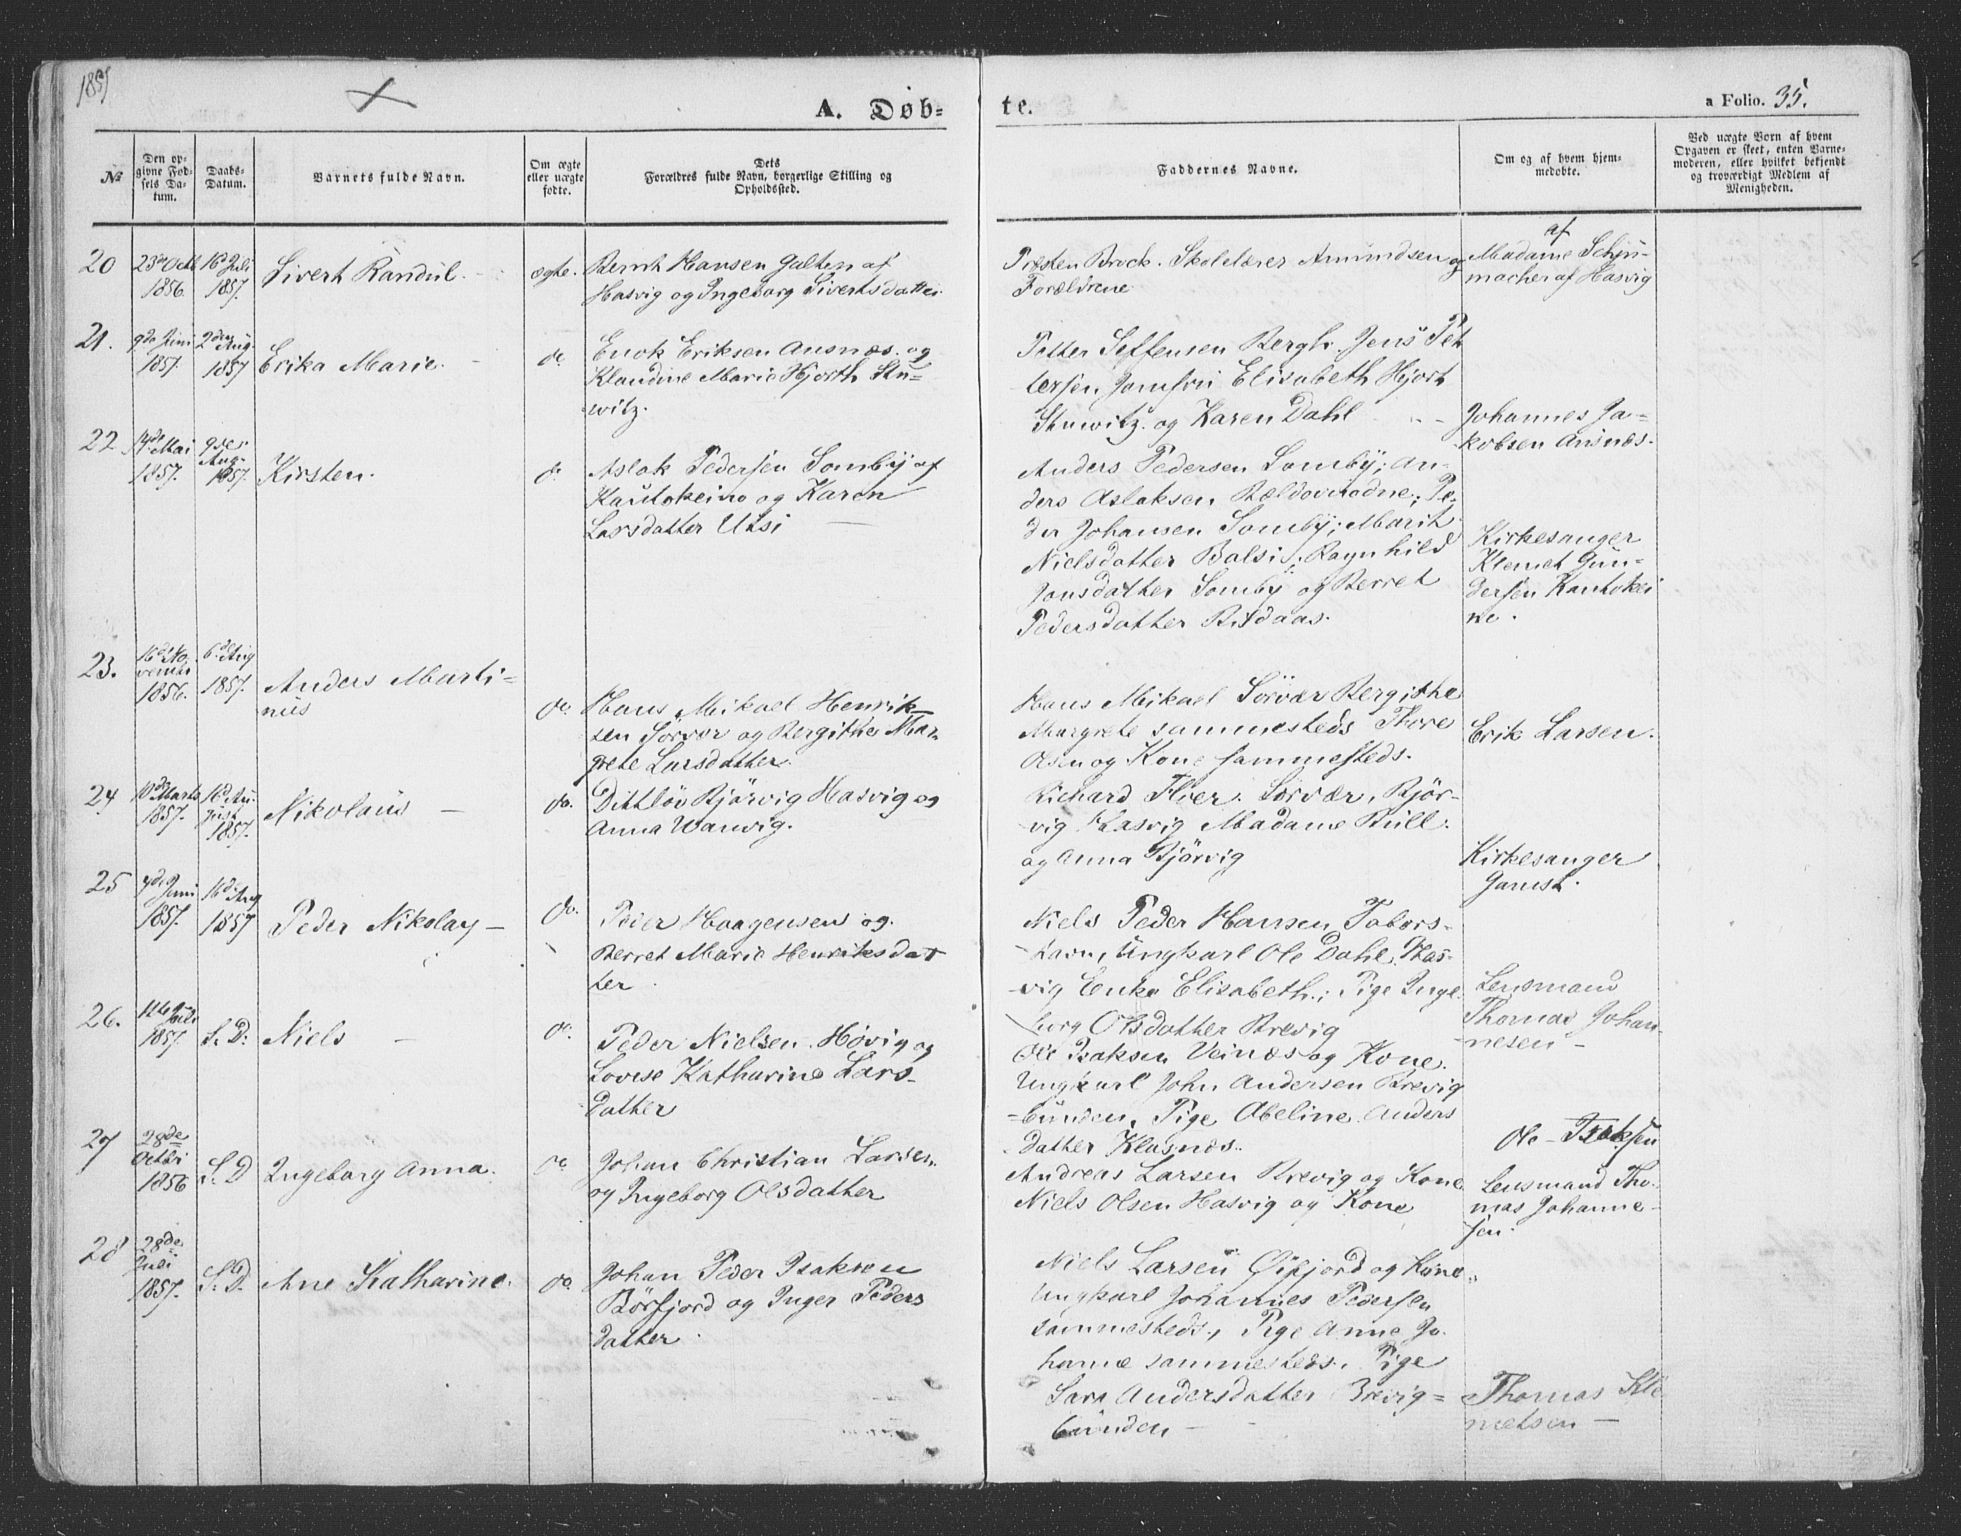 1857
A. Døb-
te.
a Folio. 35.
№
Den op-
givne Fød-
sels Da-
tum.
Daabs-
Datum.
Barnets fulde Navn.
Om ægte
eller uægte
fødte.
Dets
Forældres fulde Navn, borgerlige Stilling og
Opholdssted.
Faddernes Navne.
Om og af hvem hjem-
medøbte.
Ved uægte Børn af hvem
Opgaven er skeet, enten Barne-
moderen, eller hvilket bekjendt
og troværdigt Medlem af
Menigheden.
20
23de Octb
1856.
16d Juli
1857.
Sivert Randul.
ægte.
Bernt Hansen Galten af
Hasvig og Ingeborg Sivertsdatter.
Præsten Brock. Skolelærer Amundsen og
Forældrene
af
Madame Schju-
macher af Hasvig
21.
9de Juni
1857.
2den Aug.
1857
Erika Marie.
do.
Enok Eriksen Ansnæs. og
Klaudine Marie Hjorth Stu-
witz.
Petter Seffensen Bergh. Jens Pet
tersen Jomfru Elisabeth Hjort
Stuwitz. og Karen Dahl
Johannes Ja-
kobsen Ansnæs.
22
Mai
1857.
9de
Aug.
1857.
Kirsten.
do
Aslak Pedersen Somby af
Kautokeino og Karen
Larsdatter Utsi
Anders Pedersen Somby; An-
ders Aslaksen Bældovuodne; Pe-
der Johansen Somby; Marit
Nielsdatter Balsi; Ragnhild
Jonsdatter Somby og Berret
Pedersdatter Ritdaas.
Kirkesanger
Klemet Gun-
dersen Kautokei
no.
23.
16d No
vembr
1856.
6d Aug
1857.
Anders Marti-
nus
do.
Hans Mikael Henrik-
sen Sörvær og Bergithe Mar-
grete Larsdatter.
Hans Mikael Sörvær Bergithe
Margrete sammesteds Thore
Olsen og Kone sammesteds.
Erik Larsen.
24
10de Marts
1857.
16d Au-
gust
1857.
Nikolaus
do.
Dittlöv Björvig Hasvig og
Anna Wanvig.
Richard Flver. Sörvær, Björ-
vig Hasvig Madame Bull.
og Anna Björvig
Kirkesanger
Jamst.
25
7de Juni
1857.
16d Aug
1857
Peder Nikolay
do.
Peder Haagensen og
Berret Marie Henriksdat
ter
Niels Peder Hansen Tabors-
havn, Ungkarl Ole Dahl Has-
vig Enke Elisabeth; Pige Inge-
burg Olsdatter Brevig
Lensmand
Thomas Johan-
nesen
26.
Juli
1857.
S. D:
Niels
do.
Peder Nielsen Hövig og
Lovise Katharine Lars-
datter
Ole Isaksen Veinæs og Kone.
Ungkarl John Andersen Brevig
bunden, Pige Abeline Anders
datter Klasnæs.
Ole Isaksen
27
28de
Octbr
1856
S. D
Ingeborg Anna.
do
Johan Christian Larsen.
og Ingeborg Olsdatter
Andreas Larsen Brevig og Kone
Niels Olsen Hasvig og Kone
Lensmand Tho-
mas Johanne-
sen.
28
28de
Juli
1857.
S. D.
Ane Katharine.
do
Johan Peder Isaksen
Börfjord og Inger Peders
datter
Niels Larsen Öxfjord og Kone
Ungkarl Johannes Pedersen
sammesteds, Pige Anne Jo-
hanne sammesteds. Pige
Sara Andersdatter Brevig-
bunden
Thomas Kle
metsen